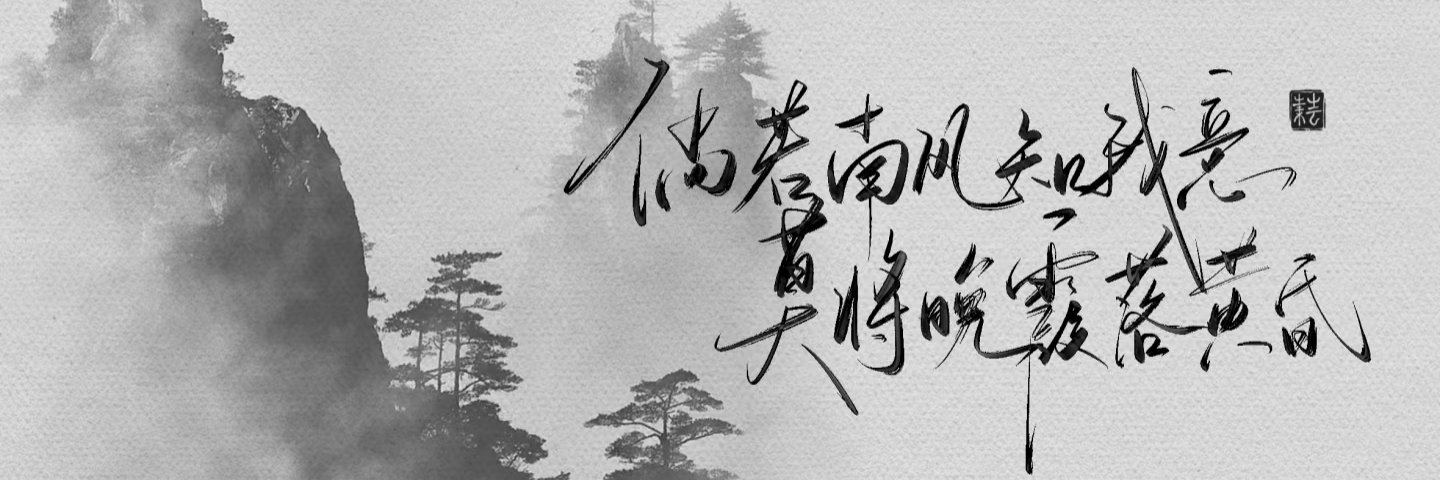 倘若南风知我意
莫将晚霞落黄昏